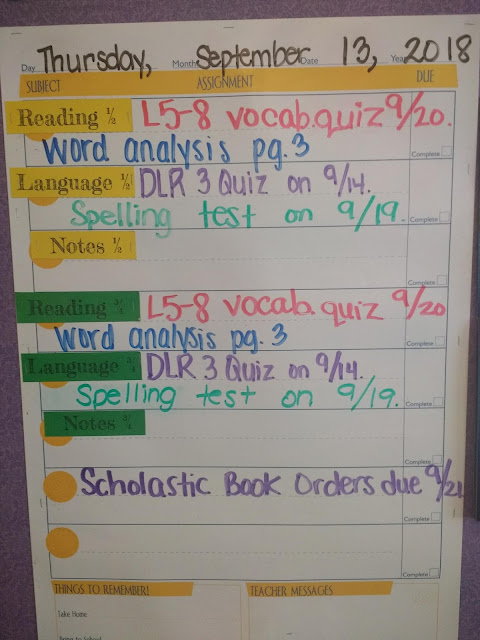 Day Thursday, Month September Date 13, Year 2018
SUBJECT ASSIGNMENT DUE
Reading ½ L5-8 vocab. quiz 9/20.
Word analysis pg. 3 Complete
Language ½ DLR 3 Quiz on 9/14.
Spelling test on 9/19. Complete
Notes ½
Complete
Reading ¾ L5-8 vocab. quiz 9/20
Word analysis pg. 3 Complete
Language ¾ DLR 3 Quiz on 9/14.
Spelling test on 9/19. Complete
Notes ¾
Complete
Scholastic Book Orders due 9/21
Complete
Complete
THINGS TO REMEMBER! TEACHER MESSAGES
Take Home
Bring to School